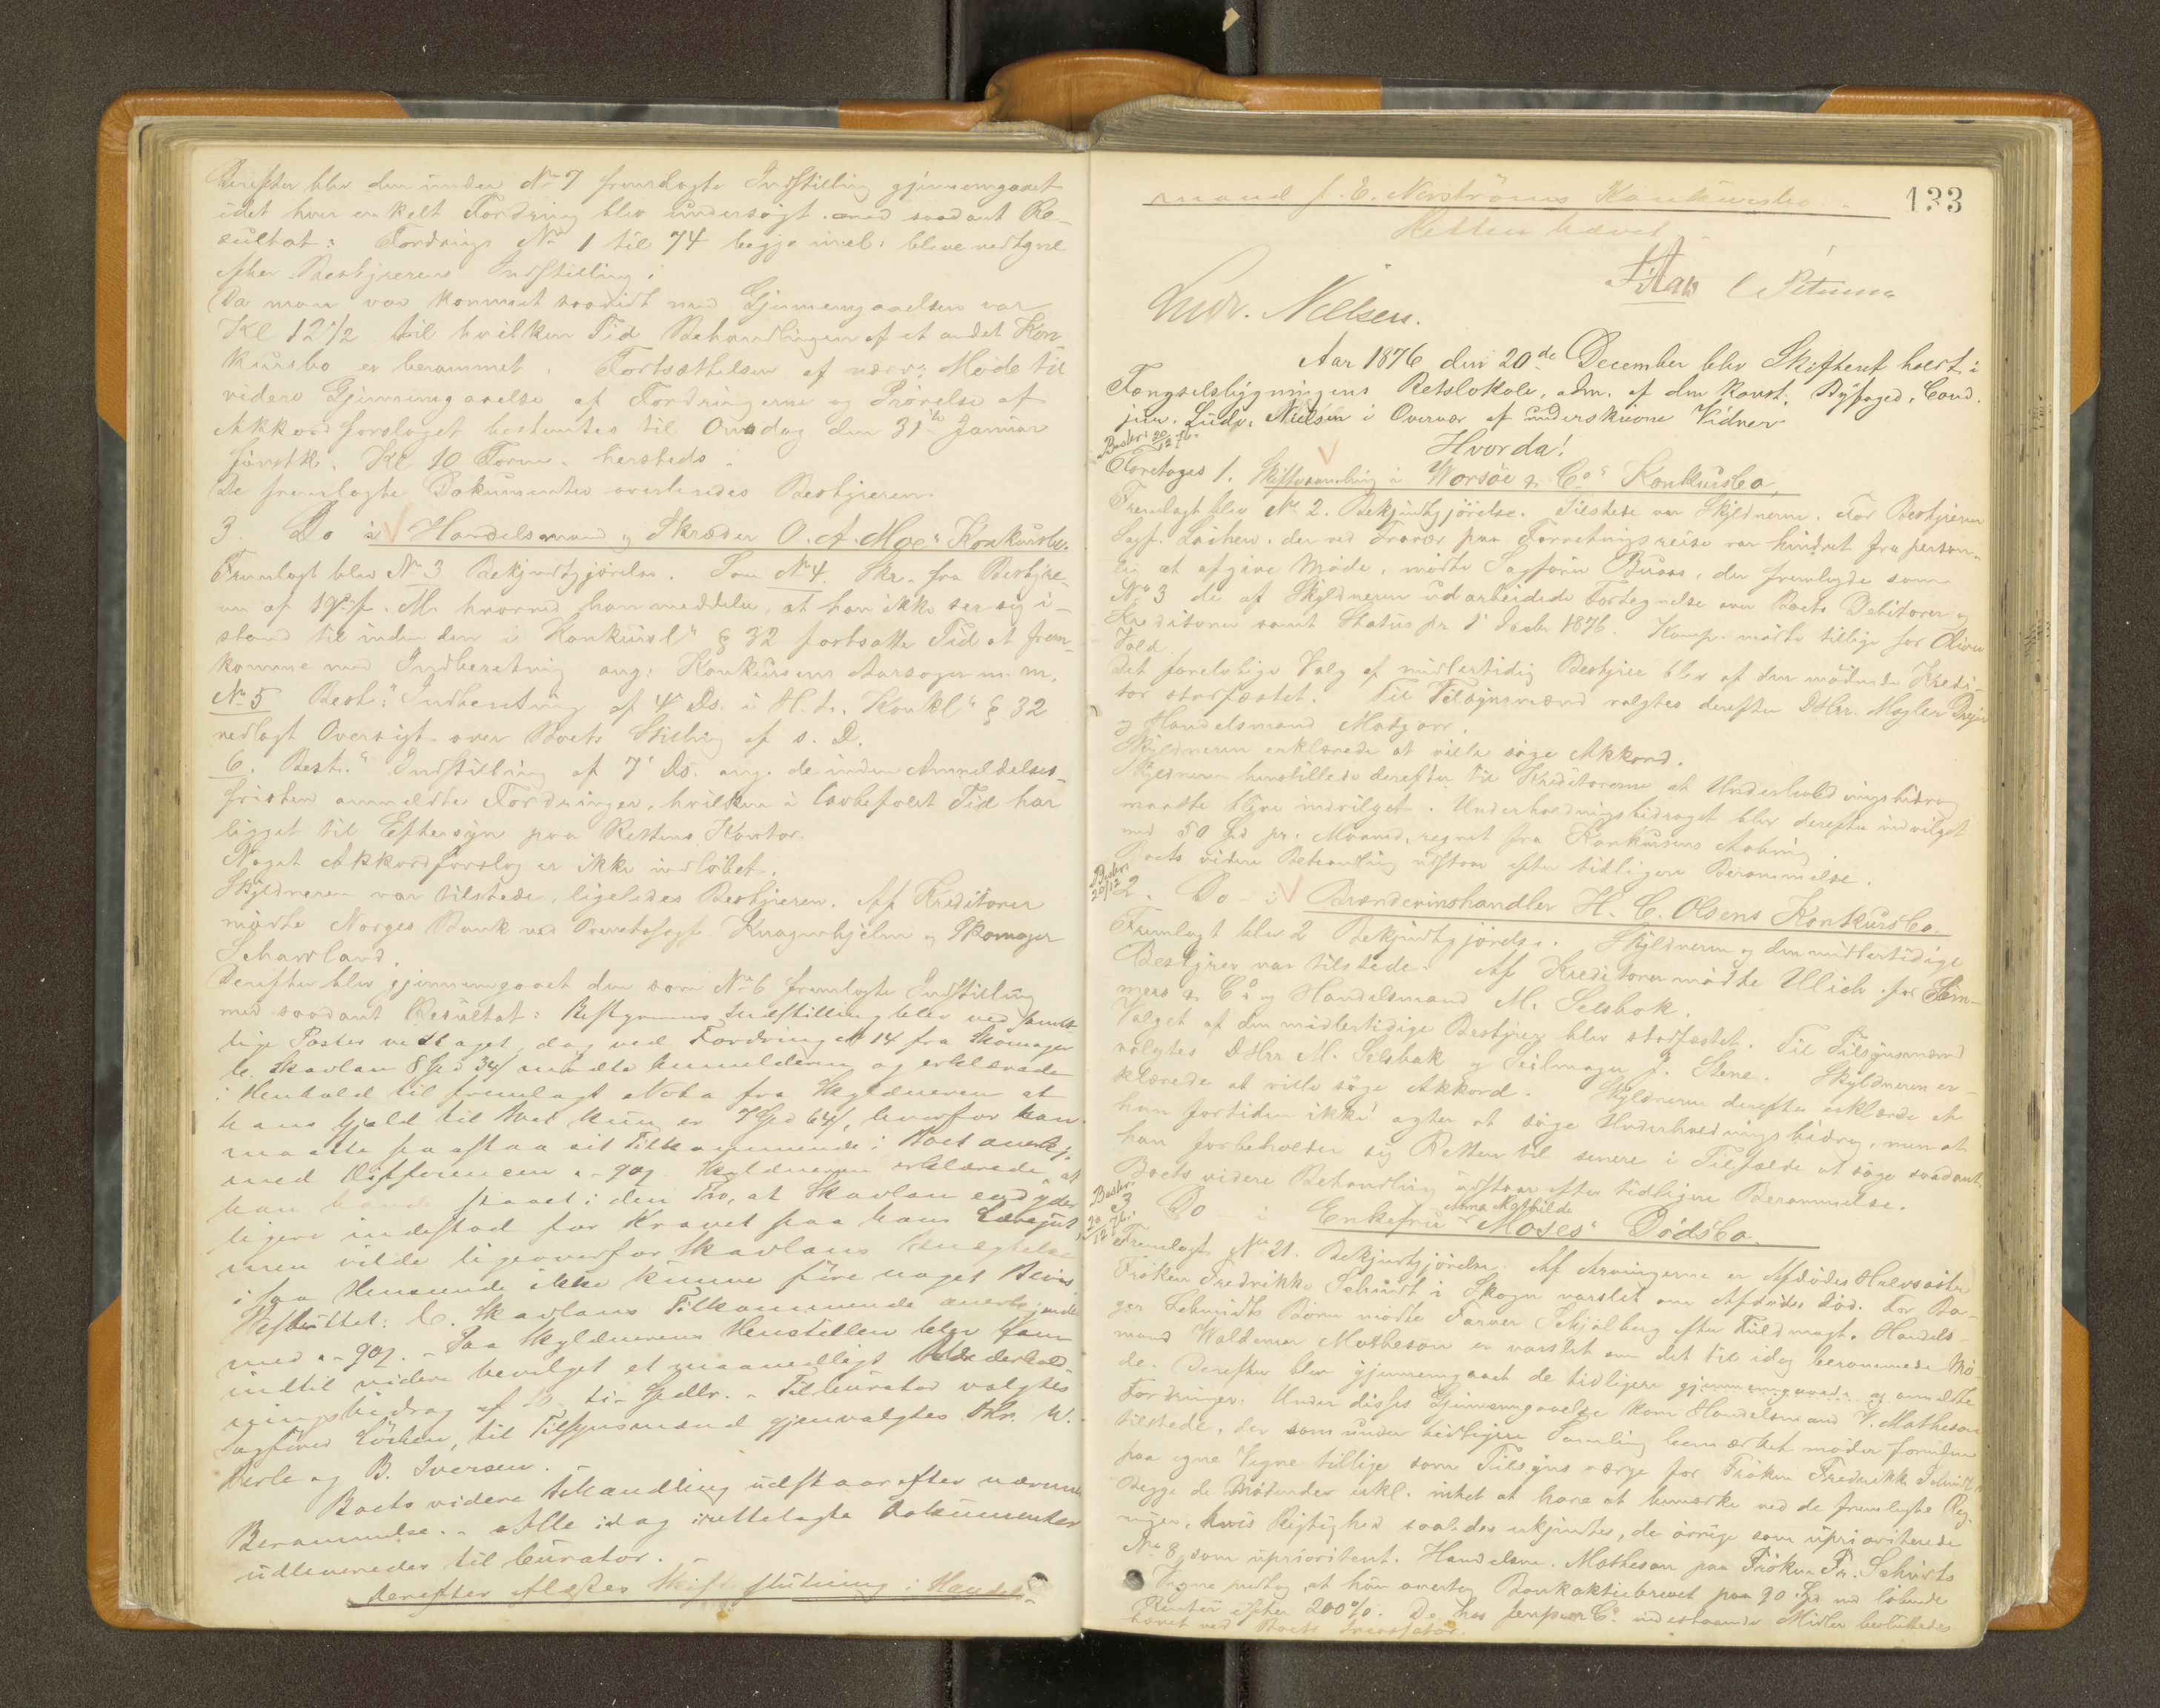 Derefter blev den under No 7 fremlagte Indstilling gjennemgaaet
idet hver enkelt Fordring blev undersøgt med saadant Re-
sultat: Fordrings No 1 til 74 begge incl. bleve vedtagne
efter Bestyrerens Indstilling.
Da man var kommet saavidt med Gjennemgaaelsen var
Kl 12 1/2 til hvilken Tid Behandlingen af et andet Kon-
kursbo er berammet. Fortsættelsen af nærv. Møde til
videre Gjennemgaaelse af Fordringerne og Prøvelse af
Akkordforslaget bestemtes til Onsdag den 31te Januar
førstk. Kl 10 Form. hersteds.
De fremlagte Dokumenter overleveredes Bestyreren.
3. Do i Handelsmand og Skræder O. A. Moe's Konkursbo.
Fremlagt blev No 3 Bekjendtgjørelse. Som No 4 Skr. fra Bestyre-
ren af f. M. hvorved han meddeler, at han ikke ser sig i-
stand til inden den i Konkursl's § 32 fortsatte Tid at frem-
komme med Indberetning ang. Konkursens Aarsager m. m.
No 5 Best's Indberetning af 4 Ds. i H. t. Konkl's § 32
vedlagt Oversigt over Boets Stilling af s. D.
6. Best's Indstilling af 7 Ds. ang. de inden Anmeldelses-
fristen anmeldte Fordringer, hvilken i lovbefalet Tid har
ligget til Eftersyn paa Rettens Kontor.
Noget Akkordforslag er ikke indløbet.
Skyldneren var tilstede, ligeledes Bestyreren. Af Kreditorer
mødte Norges Bank ved Overretssagf. Knagenhjelm og Skomager
Schavland.
Derefter blev gjennemgaaet den som No 6 fremlagte Indstilling
med saadant Resultat: Bestyrerens Indstilling blev ved samt-
lige Poster vedtaget, dog ved Fordring No 14 fra Skomager
C. Skavlan 8 Spd 34 s mødte Anmelderen og erklærede
i Henhold til fremlagt Nota fra Skyldneren at
hans Gjæld til Boet kun er 7 Spd 64 s, hvorfor han
maatte paastaa sit Tilkommende i Boet anerkj.
med Differencen " - 90 s. Skyldneren erklærede at
han havde staaet i den Tro, at Skavlan end yder-
ligere indestod for Kravet paa hans
men vilde ligeoverfor Skavlans Benægtelse
i saa Henseende ikke kunne føre noget Bevis
Besluttet: C. Skavlans Tilkommende anerkjendt
med " - 90 s. - Paa Skyldnerens Henstillen blev ham
indtil videre bevilget et maanedligt Underhold-
ningsbidrag af 10 - ti - Spdlr. - Til Curator valgtes
Sagfører Løchen, til Tilsynsmænd gjenvalgtes Hr. W.
Werle og B. Iversen.
Boets videre Behandling udstaar efter nærmere
Berammelse. - Alle idag irettelagte Dokumenter
udleveredes til Curator. -
Derefter aflæstes Skifteslutning i Handels-
mand J. E. Norströms Konkursbo -
133
Retten hævet -
Ludv. Nielsen.
Aar 1876 den 20de December blev Skifteret holdt i
Fængselsbygningens Retslokale, adm. af den konst. Byfoged, Cand.
jur. Ludv. Nielsen i Overvær af underskrevne Vidner
Hvorda!
Beskr. 20/12 76.
Foretoges 1. Skiftesamling i Worsøe & Co's Konkursbo.
Fremlagt blev No 2. Bekjendtgjørelse. Tilstede var Skyldneren. For Bestyreren
Sagf. Løchen, der ved Fravær paa Forretningsreise var hindret fra person-
lig at afgive Møde, mødte Sagfører Buaas, der fremlagde som
No 3 de af Skyldneren udarbeidede Fortegnelse over Boets Debitorer og
Kreditorer samt Status pr 1 Decbr 1876. Komp. mødte tillige for Oliver
Vold.
Det foreløbige Valg af midlertidig Bestyrer blev af den mødende Kredi-
tor stadfæstet. Til Tilsynsmænd valgtes derefter DHrr. Mægler Dreyer
og Handelsmand Matzow.
Skyldneren erklærede at ville søge Akkord.
Skyldneren henstillede derefter til Kreditorerne at Underholdningsbidrag
maatte blive indvilget. Underholdningsbidraget blev derefter indvilget
med 50 Spd pr. Maaned, regnet fra Konkursens Aabning.
Boets videre Behandling udstaar efter tidligere Berammelse.
Beskr. 20/12
2. Do - i Brændevinshandler H. C. Olsens Konkursbo.
Fremlagt blev 2 Bekjendtgjørelse. Skyldneren og den midlertidige
Bestyrer var tilstede. Af Kreditorer mødte Ulich for Sem-
mers & Co og Handelsmand M. Selsbak.
Valget af den midlertidige Bestyrer blev stadfæstet. Til Tilsynsmænd
valgtes DHrr M. Selsbak og Seilmager J. Stene. Skyldneren er-
klærede at ville søge Akkord. Skyldneren derefter erklærede at
han fortiden ikke agter at søge Underholdningsbidrag, men at
han forbeholder sig Retten til senere i Tilfælde at søge saadant.
Boets videre Behandling udstaar efter tidligere Berammelse.
Beskr. 20/12 76.
3 Do - i Enkefru Anna Mathilde Moses' Dødsbo.
Fremlagt No 21. Bekjendtgjørelse. Af Arvingerne er Afdødes Halvsøster
Frøken Fredrikke Schmidt i Skogn varslet om Afdødes Død. For Ba-
ger Schmidts Børn mødte Farver Schjølberg efter Fuldmagt. Handels-
mand Waldemar Matheson er varslet om det til idag berammede Mø-
de. Derefter blev gjennemgaaet de tidligere gjennemgaaede og anmeldte
Fordringer. Under disses Gjennemgaaelse kom Handelsmand V. Matheson
tilstede, der som under tidligere Samling bemærket møder foruden
paa egne Vegne tillige som Tilsynsværge for Frøken Fredrikke Schmidt.
Begge de Mødende erkl. intet at have at bemærke ved de fremlagte Reg-
ninger, hvis Rigtighed saaledes erkjendtes, de øvrige som uprioriterede
No 8 som uprioriteret. Handelsm. Matheson paa Frøken Fr. Schmidts
Vegne paatog at hun overtog Bankaktiebrevet paa 90 Spd med løbende
Renter efter 200%. De hos Jenssen & Co indestaaende Midler besluttedes
hævet ved Boets Incassator.